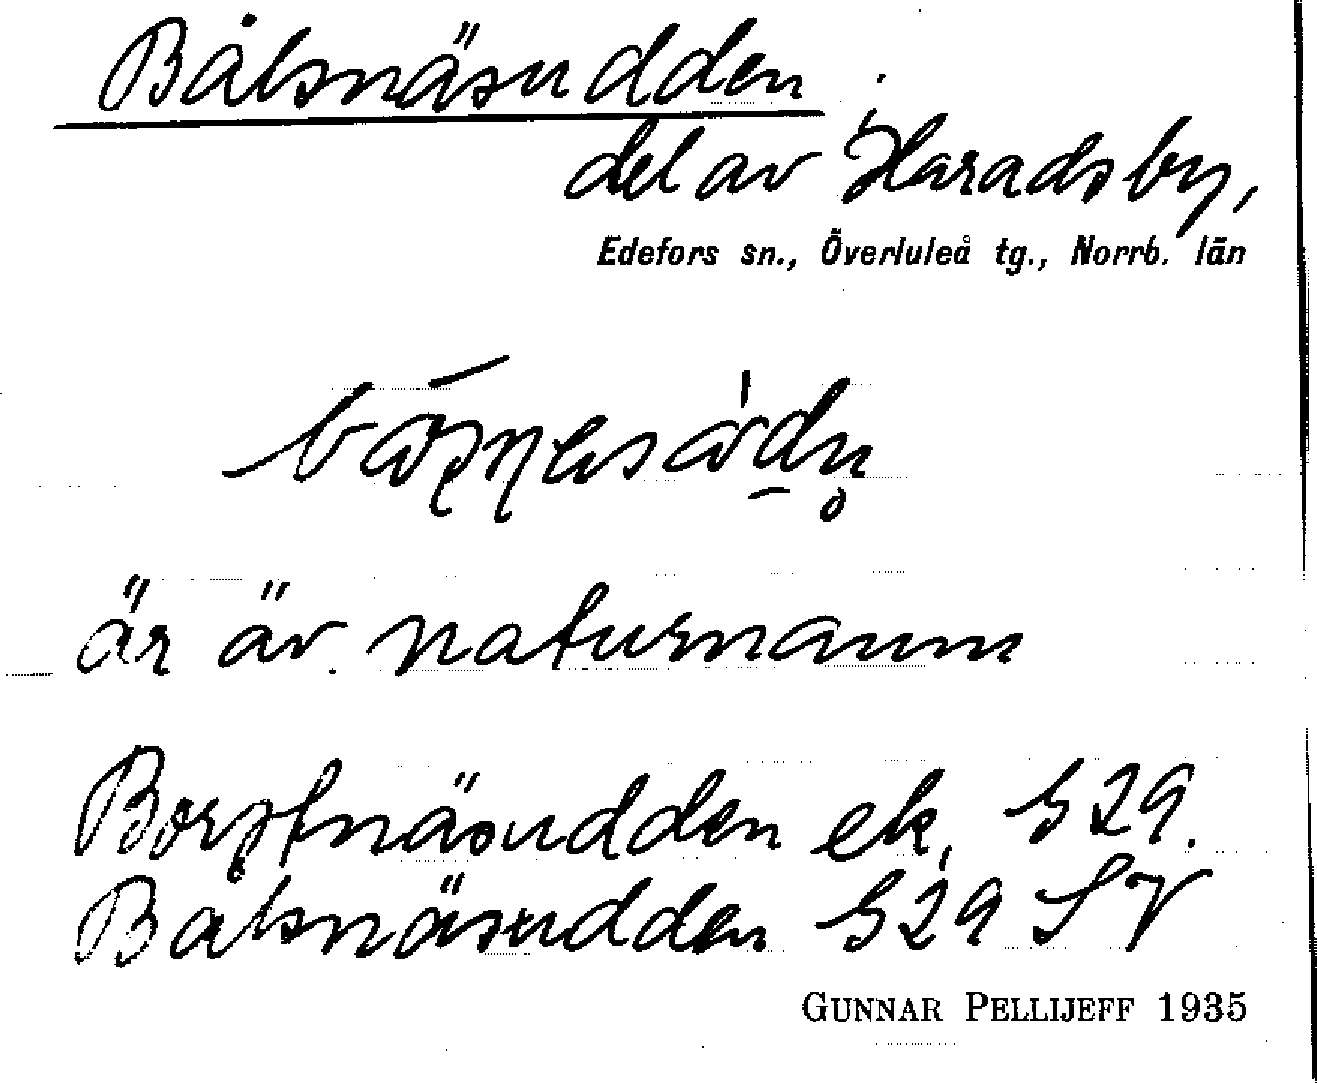 Båtsnäsudden
del av Haradsby,
Edefors sn., Överluleå tg., Norrb. län
är äv. naturnamn
ek. 529.
Batsnäsudden 529 SV
GUNNAR PELLIJEFF 1935